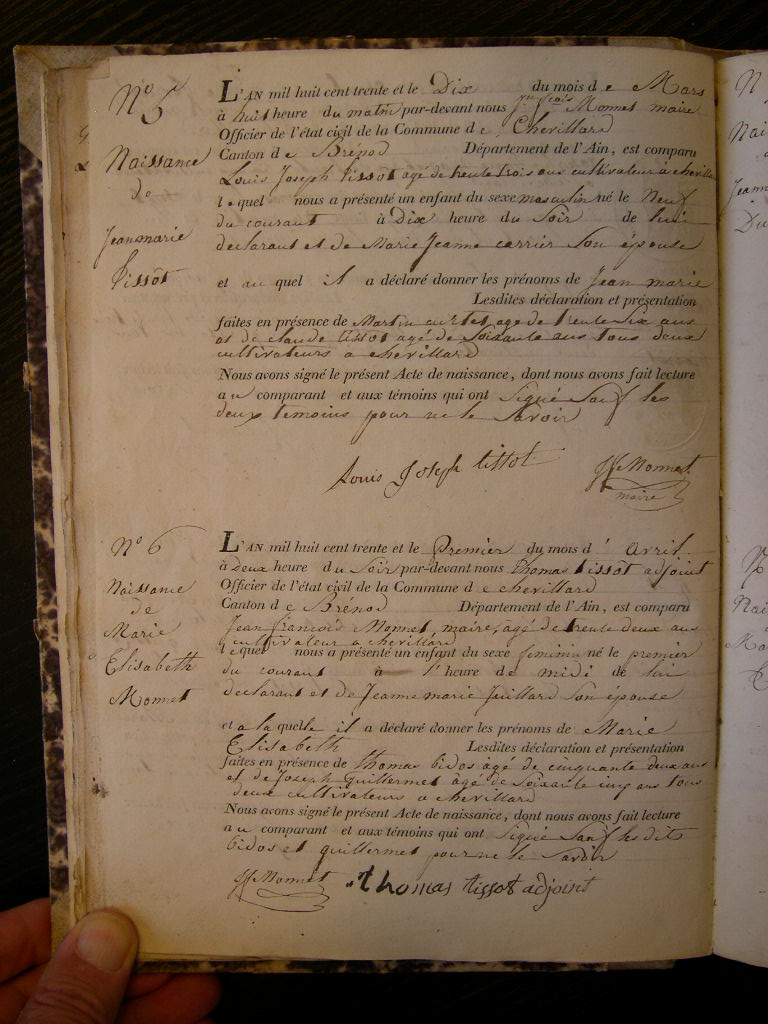 N° 5
Naissance
de
Jeanmarie
Tissôt
L'AN mil huit cent trente et le Dix du mois de Mars
à huit heure du matin par-devant nous jn fcois Monnet maire
Officier de l'état civil de la Commune de Chevillard
Canton de Brénod Département de l'Ain, est comparu
Louis Joseph Tissot agé de trente trois ans cultivateur à chevillard
lequel nous a présenté un enfant du sexe masculin né le Neuf
du courant à Dix heure du Soir de lui
declarant et de Marie Jeanne carrier Son épouse
et au quel il a déclaré donner les prénoms de Jean marie
Lesdites déclaration et présentation
faites en présence de Martin agé de trente Six ans
et de claude tissot agé de Soixante ans tous deux
cultivateurs a chevillard
Nous avons signé le présent Acte de naissance, dont nous avons fait lecture
au comparant et aux témoins qui ont Signé Sauf les
deux temoins pour ne le Savoir
Louis Joseph tissot JfMonnet
maire
N° 6
Naissance
de
Marie
Elisabeth
Monnet
L'AN mil huit cent trente et le Premier du mois d' Avril
à Deux heure du Soir par-devant nous thomas tissôt adjoint
Officier de l'état civil de la Commune de chevillard
Canton de Brénod Département de l'Ain, est comparu
Jean francois Monnet, maire, agé de trente deux ans
cultivateur a chevillard
lequel nous a présenté un enfant du sexe féminin né le premier
du courant à l'heure de midi de lui
declarant et de Jeanne marie Juillard Son épouse
et a la quelle il a déclaré donner les prénoms de Marie
Elisabeth Lesdites déclaration et présentation
faites en présence de thomas bidos agé de cinquante deux ans
et de Joseph Guillermet âgé de Soixante cinq ans tous
deux cultivateurs a chevillard
Nous avons signé le présent Acte de naissance, dont nous avons fait lecture
au comparant et aux témoins qui ont Signé Sauf les dits
bidos et guillermet pour ne le Savoir
JfMonnet thomas tissot adjoint